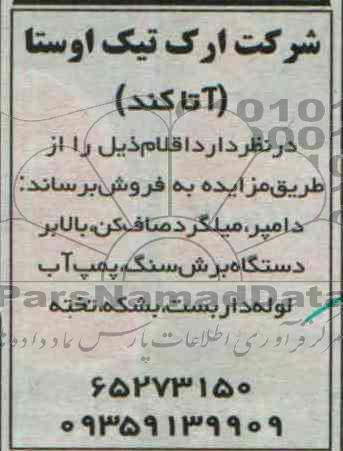 شرکت ارک تیک اوستا
(آتاکند)
درنظردارداقلام ذیل را از
طریق مزایده به فروش برساند:
دامپر،میلگردصاف کن،بالابر
دستگاه برش سنگ،پمپ آب
لوله داربست،بشکه،تخته
ParsNamadData
مرکز فرآوری اطلاعات پارس نماد داده ها
۶۵۲۷۳۱۵۰
۰۹۳۵۹۱۳۹۹۰۹